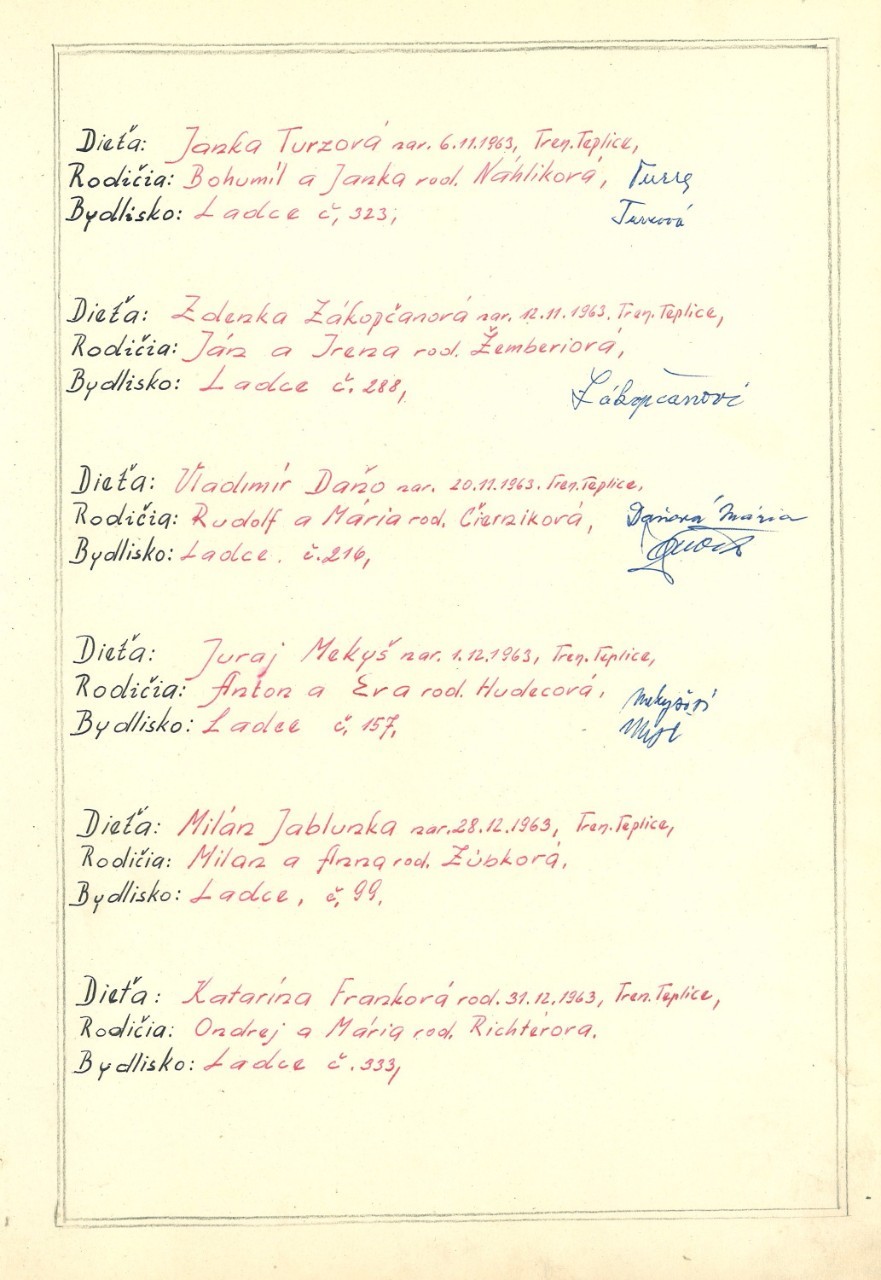 Dieťa: Janka Turzová nar. 6.11.1963, Tren. Teplice,
Rodičia: Bohumíl a Janka rod. Náhliková,
Bydlisko: Ladce č, 323,
Turzová
Dieťa: Zdenka Zákopčanová nar. 12.11.1963. Tren. Teplice,
Rodičia: Ján a Irena rod. Žemberiová,
Bydlisko: Ladce č. 288, Zákopčanoví
Dieťa: Vladimír Daňo nar. 20.11.1963. Tren. Teplice,
Rodičia: Rudolf a Mária rod. Čierniková, Daňová Mária
Bydlisko: Ladce. č. 216,
Dieťa: Juraj Mekyš nar. 1.12.1963, Tren. Teplice,
Rodičia: Anton a Eva rod. Hudecová,
Bydlisko: Ladce č, 157,
Dieťa: Milán Jablunka nar. 28.12.1963, Tren. Teplice,
Rodičia: Milan a Anna rod. Zúbková,
Bydlisko: Ladce, č, 99,
Dieťa: Katarína Franková rod. 31.12.1963, Tren. Teplice,
Rodičia: Ondrej a Mária rod. Richtérova.
Bydlisko: Ladce č. 333,